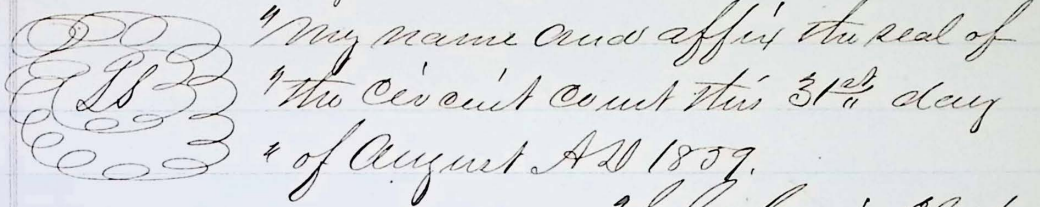 "my name and affix the seal of
LS "the Circuit Court this 31st day
" of August AD 1859.